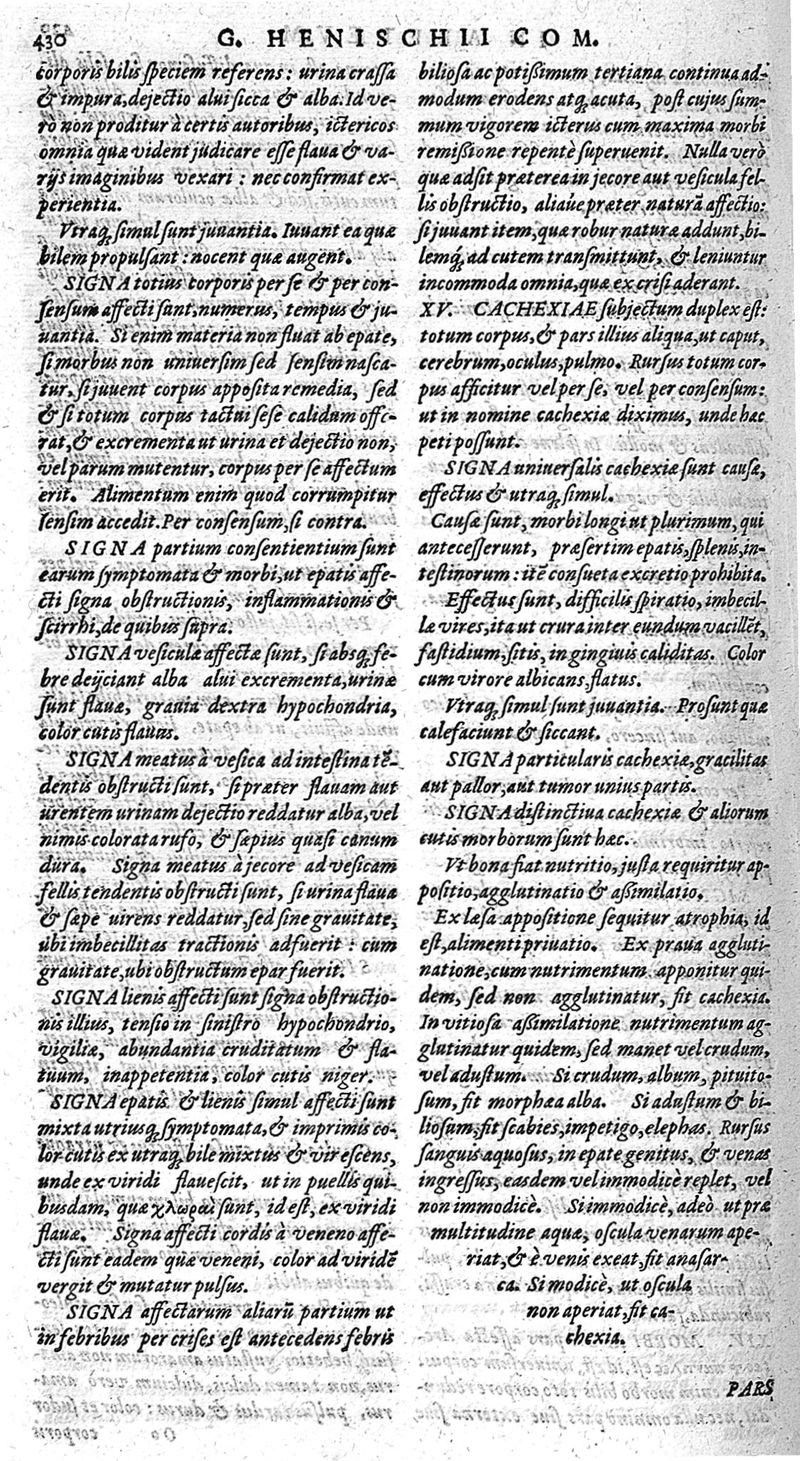 430 G. HENISCHII COM.
corporis bilis speciem referens: urina crassa
& impura, dejectio alui sicca & alba. Id ve-
rò non proditur à certis autoribus, ictericos
omnia quæ vident judicare esse flaua & va-
rijs imaginibus vexari: nec confirmat ex-
perientia.
Vtraq; simul sunt juuantia. Iuuant ea quæ
bilem propulsant: nocent quæ augent.
SIGNA totius corporis per se & per con-
sensum affecti sunt, numerus, tempus & ju-
uantia. Si enim materia non fluat ab epate,
si morbus non universim sed sensim nasca-
tur, si juuent corpus apposita remedia, sed
& si totum corpus tactui sese calidum offe-
rat, & excrementa ut urina et dejectio non,
vel parum mutentur, corpus per se affectum
erit. Alimentum enim quod corrumpitur
sensim accedit. Per consensum, si contra.
SIGNA partium consentientium sunt
earum symptomata & morbi, ut epatis affe-
cti signa obstructionis, inflammationis &
scirrhi, de quibus supra.
SIGNA vesiculæ affectæ sunt, si absq; fe-
bre deijciant alba alui excrementa, urinæ
sunt flauæ, grauia dextra hypochondria,
color cutis flauus.
SIGNA meatus à vesica ad intestina tē-
dentis obstructi sunt, si præter flauam aut
urentem urinam dejectio reddatur alba, vel
nimis colorata rufo, & sæpius quasi canum
dura. Signa meatus à jecore ad vesicam
fellis tendentis obstructi sunt, si urina flaua
& sæpe uirens reddatur, sed sine grauitate,
ubi imbecillitas tractionis adfuerit: cum
grauitate, ubi obstructum epar fuerit.
SIGNA lienis affecti sunt signa obstructio-
nis illius, tensio in sinistro hypochondrio,
vigiliæ, abundantia cruditatum & fla-
tuum, inappetentia, color cutis niger.
SIGNA epatis & lienis simul affecti sunt
mixta utriusq; symptomata, & imprimis co-
lor cutis ex utraq; bile mixtus & virescens,
unde ex viridi flauescit, ut in puellis qui-
busdam, quæ χλωραὶ sunt, id est, ex viridi
flauæ. Signa affecti cordis à veneno affe-
cti sunt eadem quæ veneni, color ad viridē
vergit & mutatur pulsus.
SIGNA affectarum aliarū partium ut
in febribus per crises est antecedens febris
biliosa ac potißimum tertiana continua ad-
modum erodens atq; acuta, post cujus sum-
mum vigorem icterus cum maxima morbi
remißione repentè superuenit. Nulla verò
quæ adsit præterea in jecore aut vesicula fel-
lis obstructio, aliaúe præter naturā affectio:
si juuant item, quæ robur naturæ addunt, bi-
lemq́; ad cutem transmittunt, & leniuntur
incommoda omnia, quæ ex crisi aderant.
XV. CACHEXIAE subjectum duplex est:
totum corpus, & pars illius aliqua, ut caput,
cerebrum, oculus, pulmo. Rursus totum cor-
pus afficitur vel per se, vel per consensum:
ut in nomine cachexiæ diximus, unde hæc
peti possunt.
SIGNA uniuersalis cachexiæ sunt causæ,
effectus & utraq; simul.
Causæ sunt, morbi longi ut plurimum, qui
antecesserunt, præsertim epatis, splenis, in-
testinorum: itē consueta excretio prohibita.
Effectus sunt, difficilis spiratio, imbecil-
læ vires, ita ut crura inter eundum vacillēt,
fastidium, sitis, in gingiuis caliditas. Color
cum virore albicans, flatus.
Vtraq; simul sunt juuantia. Prosunt quæ
calefaciunt & siccant.
SIGNA particularis cachexiæ, gracilitas
aut pallor, aut tumor unius partis.
SIGNA distinctiua cachexiæ & aliorum
cutis morborum sunt hæc.
Vt bona fiat nutritio, justa requiritur ap-
positio, agglutinatio & aßimilatio.
Ex læsa appositione sequitur atrophia, id
est, alimenti priuatio. Ex praua aggluti-
natione, cum nutrimentum apponitur qui-
dem, sed non agglutinatur, fit cachexia.
In vitiosa aßimilatione nutrimentum ag-
glutinatur quidem, sed manet vel crudum,
vel adustum. Si crudum, album, pituito-
sum, fit morphæa alba. Si adustum & bi-
liosum, fit scabies, impetigo, elephas. Rursus
sanguis aquosus, in epate genitus, & venas
ingressus, easdem vel immodicè replet, vel
non immodicè. Si immodicè, adeò ut præ
multitudine aquæ, oscula venarum ape-
riat, & è venis exeat, fit anasar-
ca. Si modicè, ut oscula
non aperiat, fit ca-
chexia.
PARS